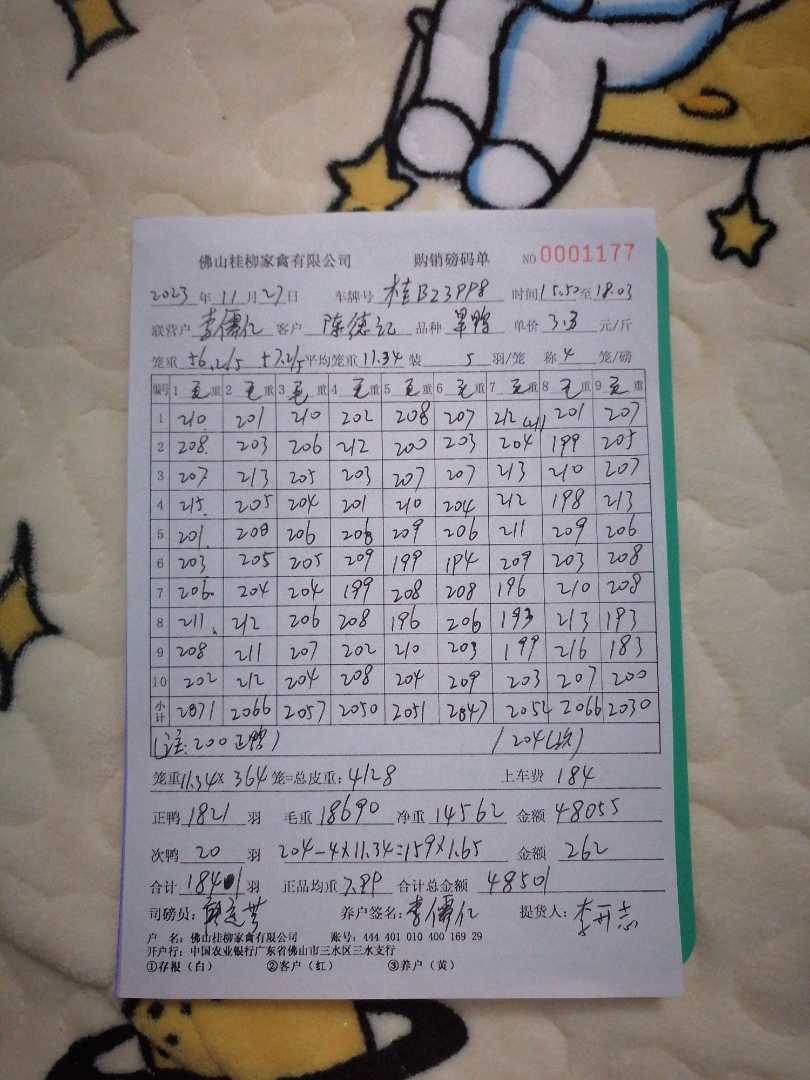 佛山桂柳家禽有限公司 购销磅码单 NO 0001177
2023 年 11 月 27 日 车牌号 桂B23998 时间 15.50 至 18.03
联营户 李儒仁 客户 陈德记 品种 单价 3.3 元/斤
笼重 56.2/5 57.2/5 平均笼重 11.34 装 5 羽/笼 称 4 笼/磅
编号 1 毛 重 2 毛 重 3 毛 重 4 毛 重 5 毛 重 6 毛 重 7 毛 重 8 毛 重 9 毛 重
1 210 201 210 202 208 207 212 201 207
2 208 203 206 212 200 203 204 199 205
3 207 213 205 203 207 207 213 210 207
4 215 205 204 201 210 204 212 198 213
5 201 200 206 206 209 206 211 209 206
6 203 205 205 209 199 194 209 203 208
7 206 204 204 199 208 208 196 210 208
8 211 212 206 208 196 206 193 213 193
9 208 211 207 202 210 203 199 216 183
10 202 212 204 208 204 209 203 207 200
小计 2071 2066 2057 2050 2051 2047 2052 2066 2030
(注: 200 正鸭) 204(次)
笼重 11.34 × 364 笼=总皮重: 4128 上车费 184
正鸭 1821 羽 毛重 18690 净重 14562 金额 48055
次鸭 20 羽 204-4×11.34=159×1.65 金额 262
合计 1841 羽 正品均重 7.99 合计总金额 48501
司磅员: 养户签名: 李儒仁 提货人: 李开志
户 名: 佛山桂柳家禽有限公司 账号: 444 401 010 400 169 29
开户行: 中国农业银行广东省佛山市三水区三水支行
①存根（白） ②客户（红） ③养户（黄）